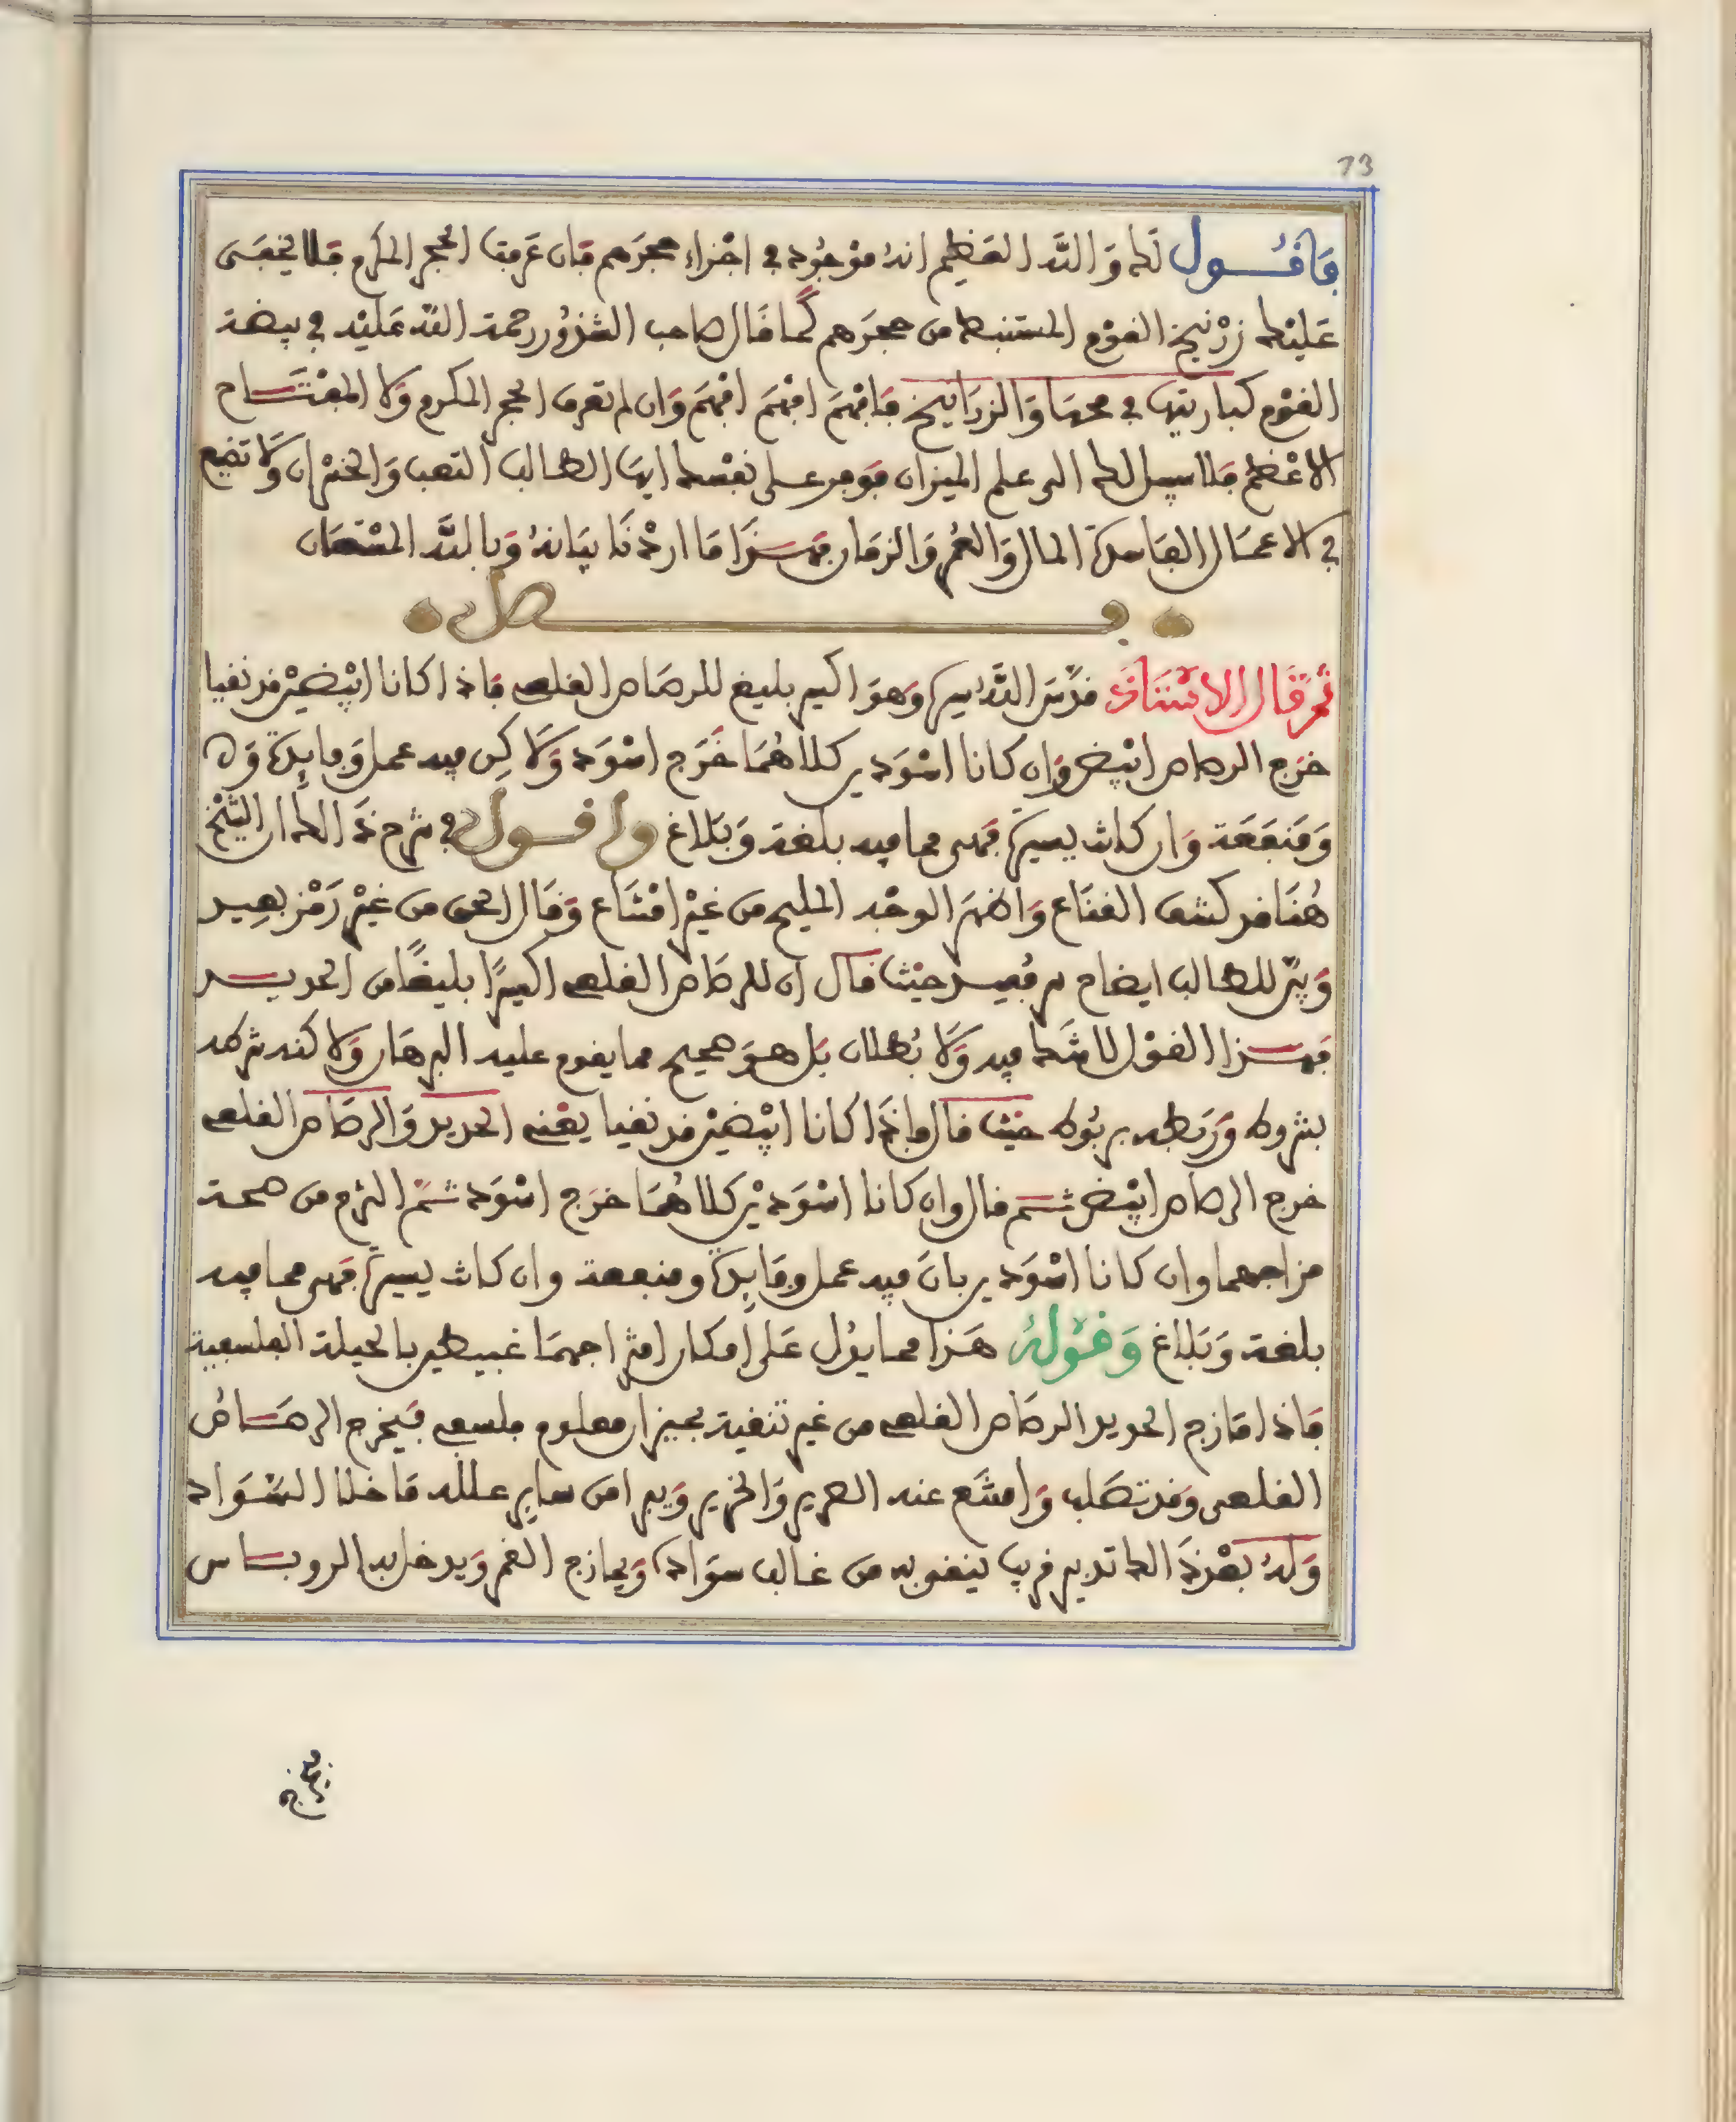 73
فَأقُـــول لَك وَاللَّه العَظيم انهُ مَوْجُود في اجْزاءِ حجرهم فَان عَرفت الحجر المكرم فَلا يخفى
عَليْك زرْنيخ القوْم المستنبط من حجرَهم كما قَال صاحب الشذُور رحمة اللّه عَليْه في بيضة
القوْم كباريتها في محها وَالزرَانيخ فَافهَم افهَم افهَم وَان لم تعرف الحجر المكرم وَلا المفتَــاح
الاعْظم فَلا سبيل لك الى علم الميزان فوَفر على نفسْك ايهَا الطالب التعب وَالخسْران وَلَا تضيع
في الاعمَال الفاسدة المال وَالعُمر وَالزمَان فهَــذَا مَا ارَدْنَا بيَانهُ وَبالله المسْتعَان
فـــــــصل
ثم قَال الاسْتَاذ قدَّسَ اللَّهُ سره وَهوَ اكسير بليغ للرصَاص القلعي فَاذا كانا ابْيضيْن قد نقيا
خرَج الرصاص ابْيض وَان كانا اسْوَدين كلاهُمَا خَرَج اسْوَد وَلَاكِن فيه عمل وَفايِدة وَه
وَمَنفَعَة وَان كانت يسيرَة فَهى مما فيه بلغة وَبَلاغ واقـــول في شرح ذَالك ان الشيْخ
هُنَا قد كشف القنَاع وَاظهَر الوجْه المليح من غيْر امْتنَاع وَقَال الحق من غيْر رَمْز بعِيد
وَبيّن للطالب ايضاح مرقيد حيْث قال ان للرصَاص القلعي اكسيرًا بليغًا من الحديــد
فهــذا القوْل لا شَك فيه وَلَا بُطلان بَل هوَ صحيح مما يقوم عليه البرهَان وَلاكنه شرطه
بشروط وَرَبطه بربُوط حيْث قال وَاذَا كانا ابْيضيْن قد نقيا يعْني الحديد وَالرصَاص القلعي
خرج الرصاص ابْيض ثــم قال وان كانا اسْوَديْن كلاهُمَا خرَج اسْوَد ثمّ التزم من صحة
مزاجهما وان كانا اسْوَدين بانَ فيه عمل وَفَايِدة ومنفعة وان كانت يسيرَة فَهى مما فيه
بلغة وَبَلاغ وَقوْلهُ هَذا مما يدُل عَلى امكان امتزاجهمَا غبيطين بالحيلة الفلسفية
فَاذا مَازج الحديد الرصَاص القلعي من غير تنقية بميزان معلوم فلسفي فيَخرج الرصَــاصُ
القلعى وَقد تصَلب وَامتنَع عنه الصرير وَالخرير وَيبرا من سايِر علله مَا خلا السَّوَاد
وَلهُ بعْد ذَالك تدبير قريب ينقى به من غالب سوَاده وَيمازج القمر وَيدخل به الروبــاس